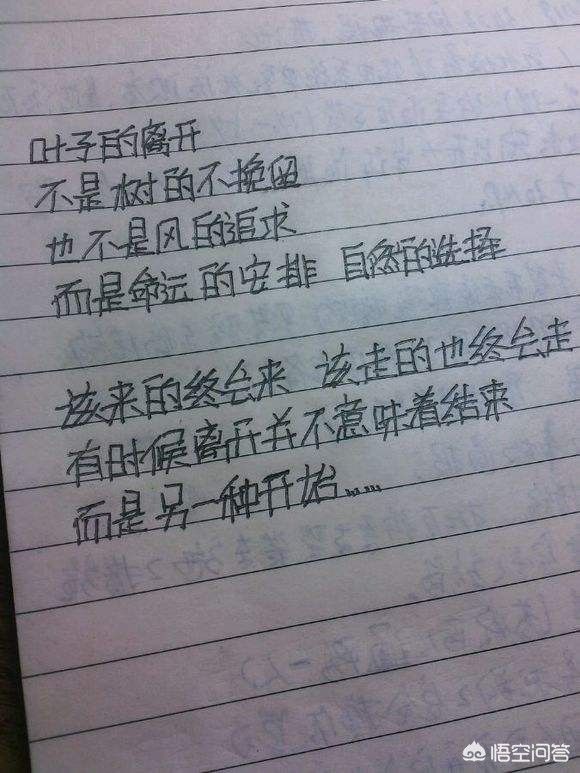 叶子的离开
不是树的不挽留
也不是风的追求
而是命运的安排 自然的选择
该来的终会来 该走的也终会走
有时候离开并不意味着结束
而是另一种开始……
悟空问答